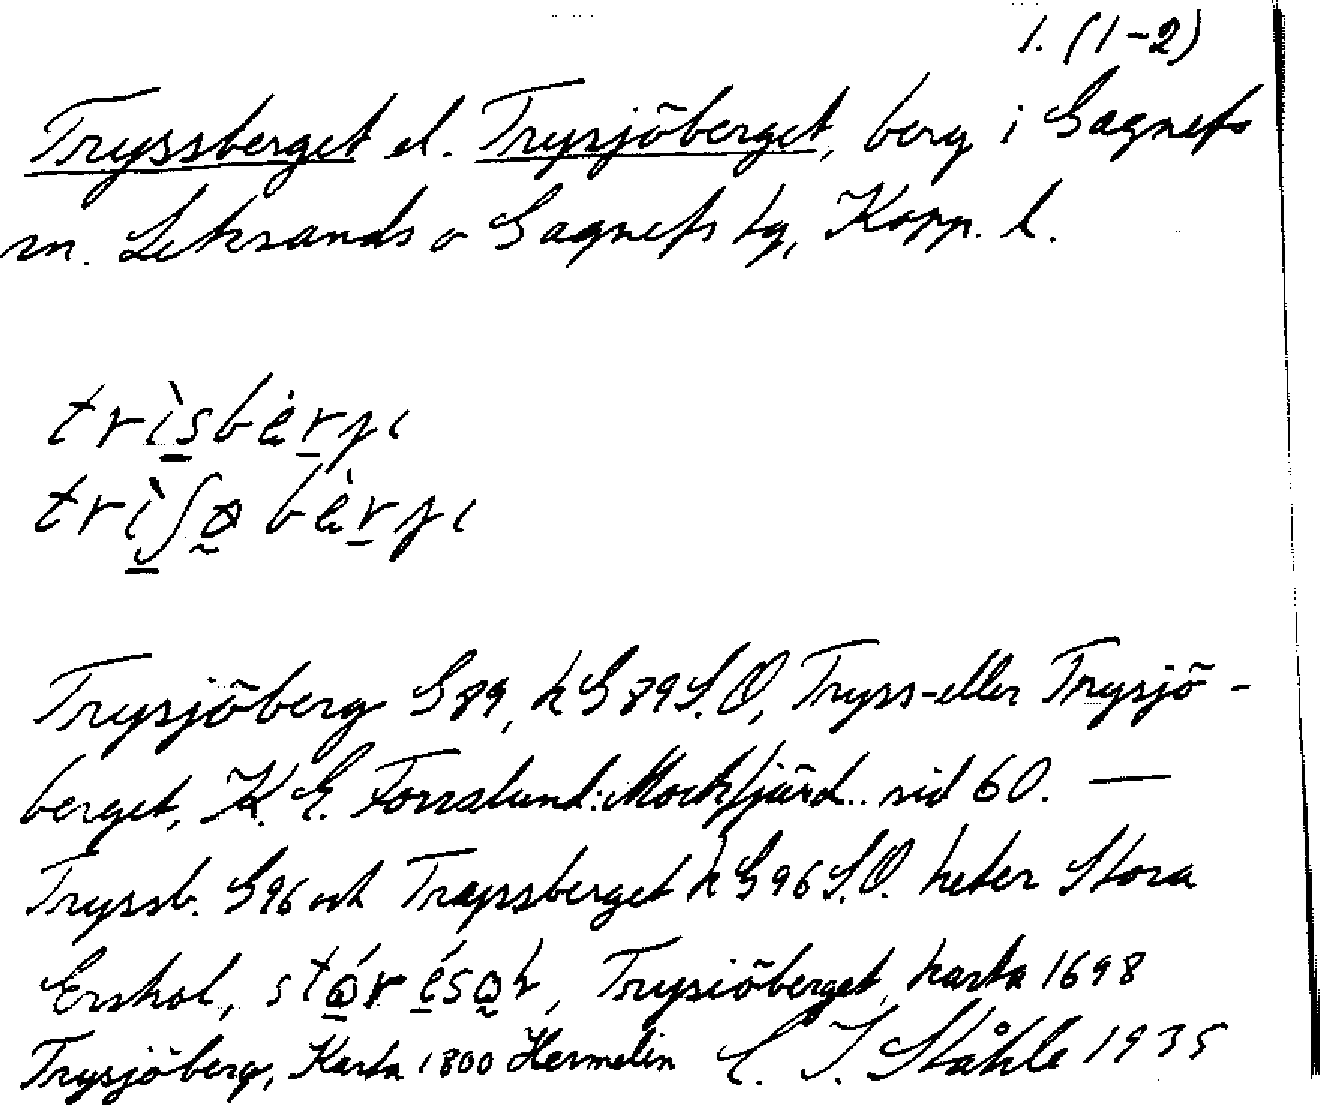 1. (1-2)
Tryssberget el. Trysjöberget, berg i Gagnefs
sn. Leksands o Gagnefs tg, Kopp. l.
trìsbèrγι
trìʃø bèrγι
Trysjöberg G 89, k G 89 S.O, Tryss- eller Trysjö-
berget, K. E. Forsslund: Mockfjärd.. sid 60. —
Tryssb. G 96 och Tryssberget k G 96 S.O. heter Stora
Erskol, Trysiöberget, karta 1698
Trysjöberg, Karta 1800 Hermelin C. I. Ståhle 1935